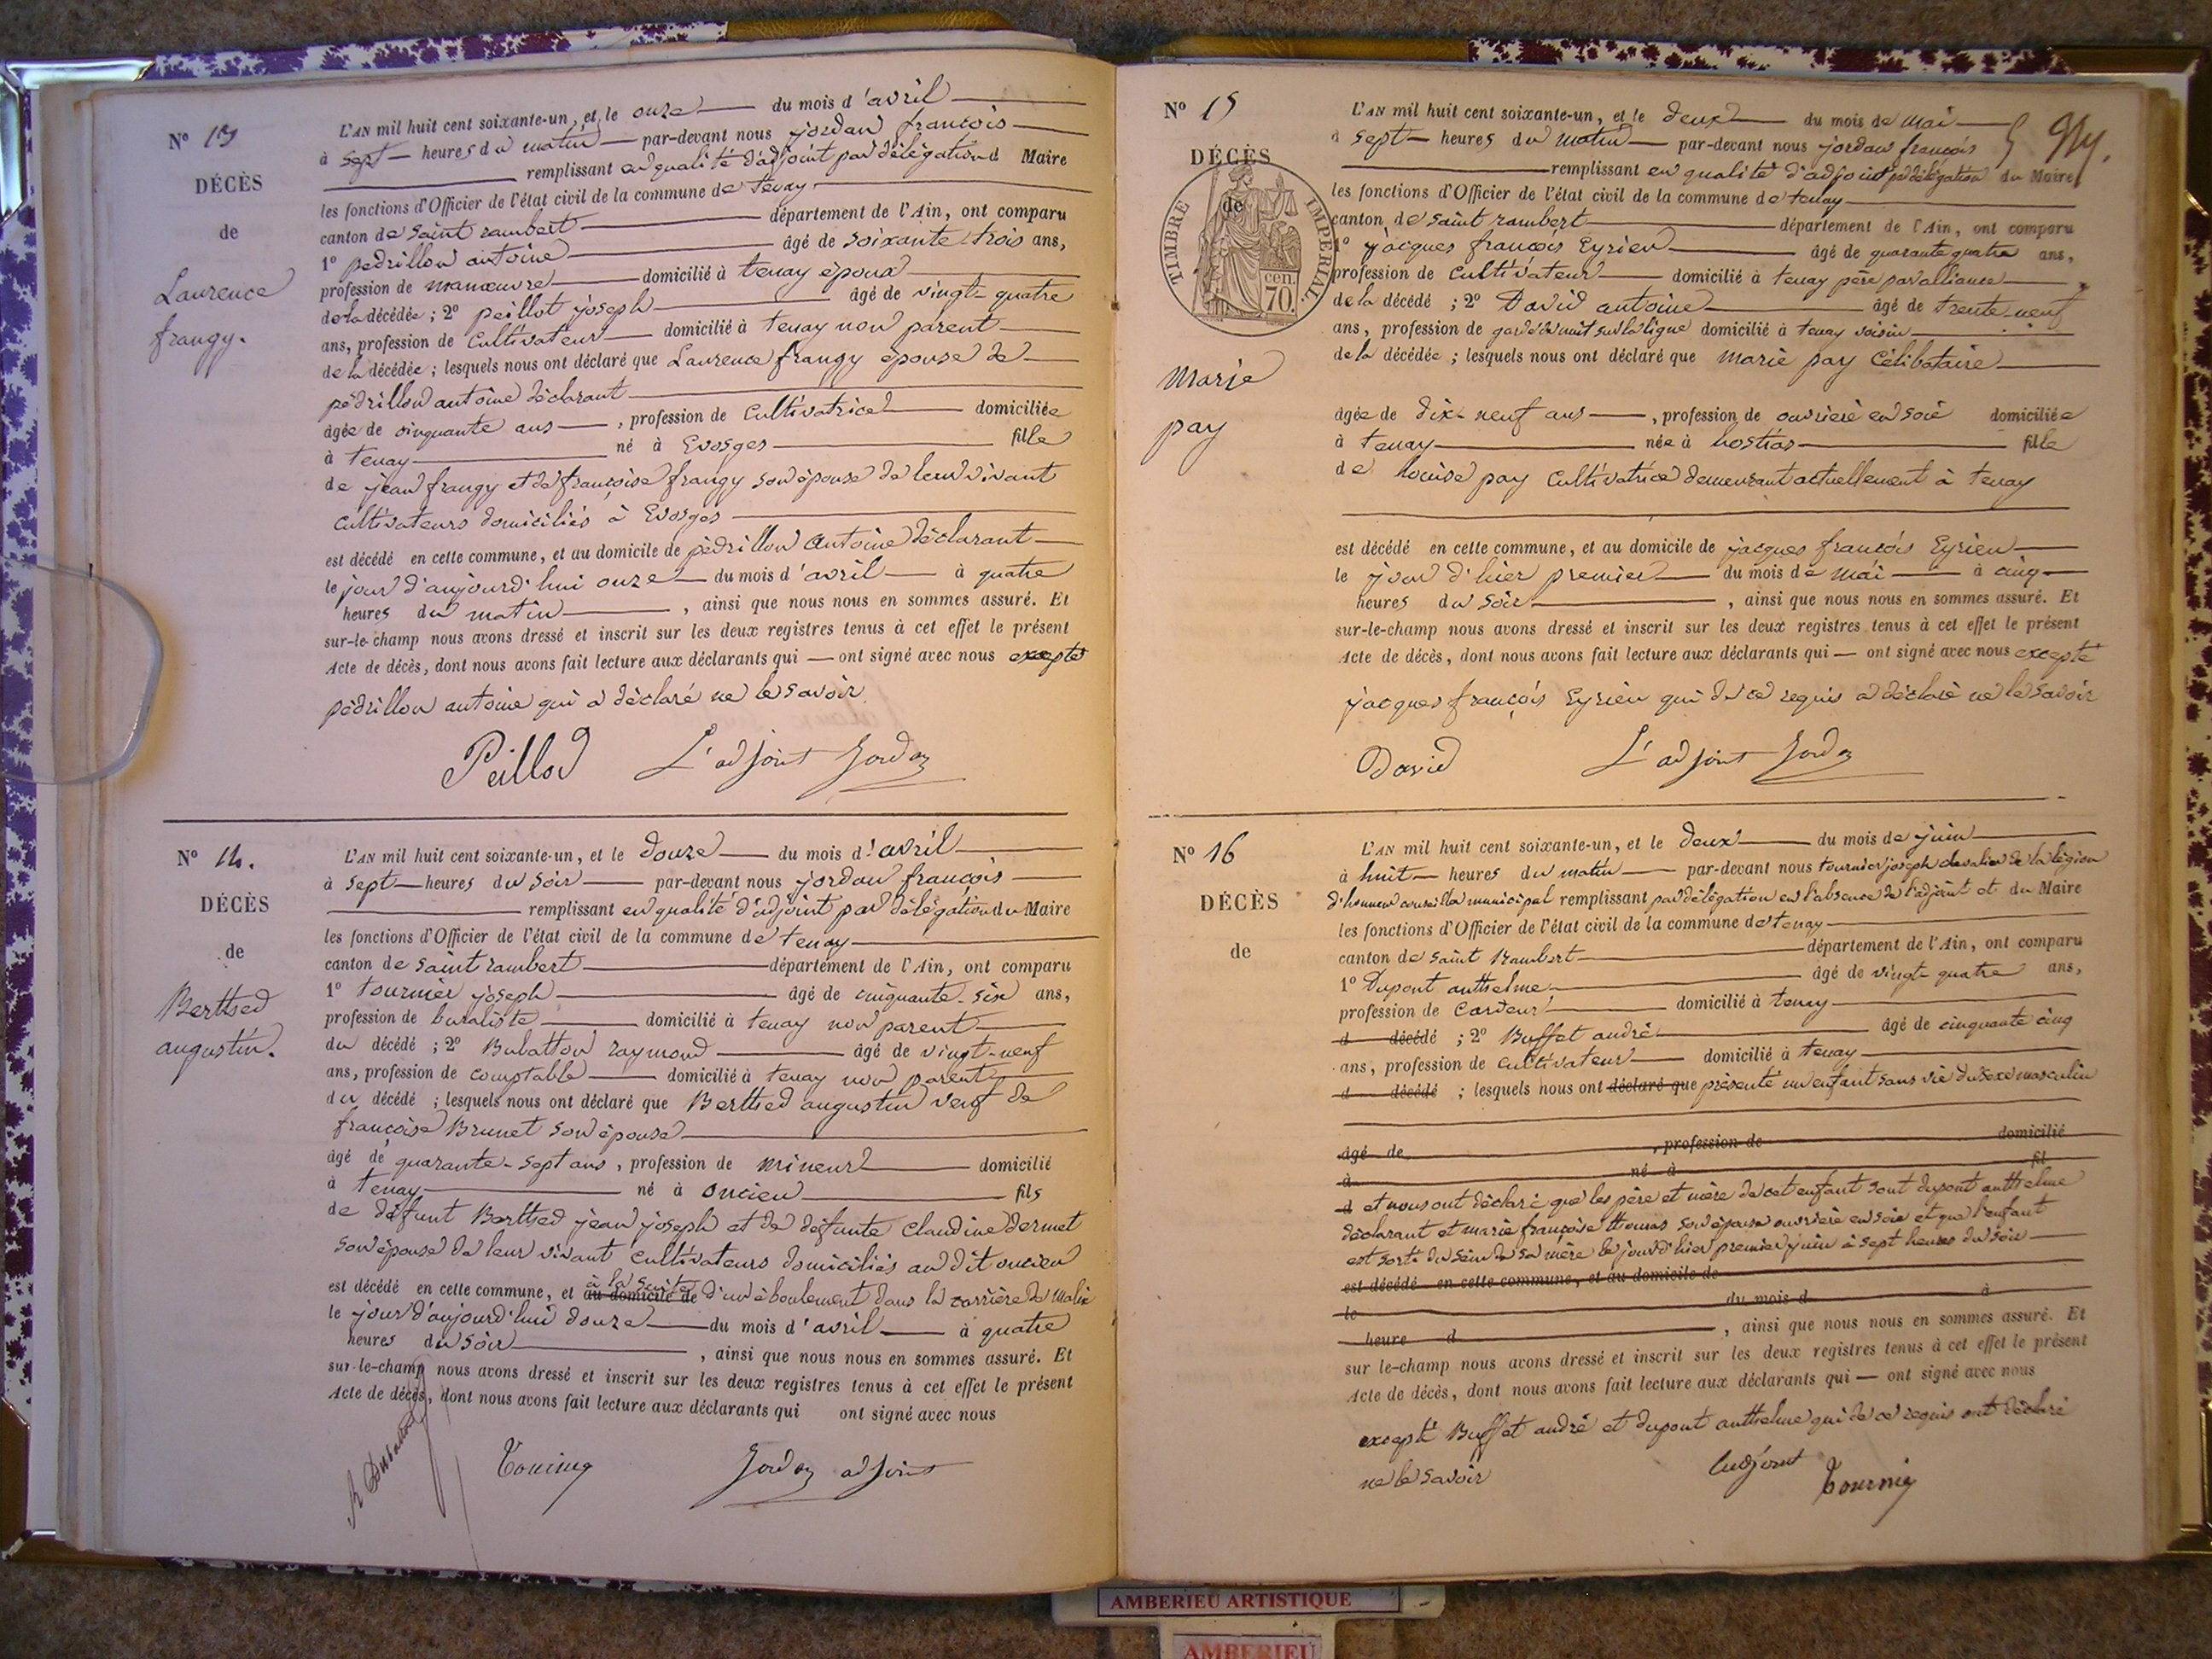 N° 13
DÉCÈS
de
Laurence
frangy.
L'AN mil huit cent soixante-un, et le onze du mois d'avril
à sept heures du matin par-devant nous jordan françois
remplissant en qualité d'adjoint par délégation d Maire
les fonctions d'Officier de l'état civil de la commune de tenay
canton de saint rambert département de l'Ain, ont comparu
1° pédrillon antoine âgé de soixante trois ans,
profession de manœuvre domicilié à tenay époux
de la décédée ; 2° peillot joseph âgé de vingt-quatre
ans, profession de cultivateur domicilié à tenay non parent
de la décédée ; lesquels nous ont déclaré que Laurence frangy épouse de
pédrillon antoine déclarant
âgée de cinquante ans, profession de cultivatrice domiciliée
à tenay né à Evosges fille
de jean frangy et de françoise frangy son épouse de leur vivant
cultivateurs domiciliés à Evosges
est décédé en cette commune, et au domicile de pédrillon antoine déclarant
le jour d'aujourd'hui onze du mois d'avril à quatre
heures du matin, ainsi que nous nous en sommes assuré. Et
sur-le-champ nous avons dressé et inscrit sur les deux registres tenus à cet effet le présent
Acte de décès, dont nous avons fait lecture aux déclarants qui — ont signé avec nous excepté
pédrillon antoine qui a déclaré ne le savoir
Peillod L'adjoint Jordan
N° 14.
DÉCÈS
de
Berthed
augustin.
L'AN mil huit cent soixante-un, et le douze du mois d'avril
à sept heures du soir par-devant nous jordan françois
remplissant en qualité d'adjoint par délégation du Maire
les fonctions d'Officier de l'état civil de la commune de tenay
canton de saint rambert département de l'Ain, ont comparu
1° tournier joseph âgé de cinquante-six ans,
profession de buraliste domicilié à tenay non parent
du décédé ; 2° Bubatton raymond âgé de vingt-neuf
ans, profession de comptable domicilié à tenay non parent
du décédé ; lesquels nous ont déclaré que Berthed augustin veuf de
françoise Brunet son épouse
âgé de quarante-sept ans, profession de mineur domicilié
à tenay né à oncieu fils
de défunt Berthed jean joseph et de défunte Claudine dermet
son épouse de leur vivant cultivateurs domiciliés au dit oncieu
est décédé en cette commune, et au domicile de à la suite d'un éboulement dans la carrière de Malix
le jour d'aujourd'hui douze du mois d'avril à quatre
heures du soir, ainsi que nous nous en sommes assuré. Et
sur-le-champ nous avons dressé et inscrit sur les deux registres tenus à cet effet le présent
Acte de décès, dont nous avons fait lecture aux déclarants qui ont signé avec nous
Jordan adjoint
N° 15
DÉCÈS
de
TIMBRE IMPÉRIAL
cen.
70.
marie
pay
L'AN mil huit cent soixante-un, et le deux du mois de mai
à sept heures du matin par-devant nous jordan françois
remplissant en qualité d'adjoint par délégation du Maire
les fonctions d'Officier de l'état civil de la commune de tenay
canton de saint rambert département de l'Ain, ont comparu
1° jacques françois Eyrieu âgé de quarante quatre ans,
profession de cultivateur domicilié à tenay père par alliance
de la décédé ; 2° David antoine âgé de trente-neuf
ans, profession de garde de nuit sur la ligne domicilié à tenay voisin
de la décédée ; lesquels nous ont déclaré que marie pay célibataire
âgée de dix-neuf ans, profession de ouvrière en soie domiciliée
à tenay née à hostias fille
de louise pay cultivatrice demeurant actuellement à tenay
est décédé en cette commune, et au domicile de jacques françois Eyrieu
le jour d'hier premier du mois de mai à cinq
heures du soir, ainsi que nous nous en sommes assuré. Et
sur-le-champ nous avons dressé et inscrit sur les deux registres tenus à cet effet le présent
Acte de décès, dont nous avons fait lecture aux déclarants qui — ont signé avec nous excepté
jacques françois Eyrieu qui de ce requis a déclaré ne le savoir
David L'adjoint Jordan
N° 16
DÉCÈS
de
L'AN mil huit cent soixante-un, et le deux du mois de juin
à huit heures du matin par-devant nous tournier joseph chevalier de la légion
d'honneur conseiller municipal remplissant par délégation en l'absence de l'adjoint et du Maire
les fonctions d'Officier de l'état civil de la commune de tenay
canton de saint Rambert département de l'Ain, ont comparu
1° Dupont anthelme âgé de vingt-quatre ans,
profession de cardeur domicilié à tenay
d décédé ; 2° Buffet andré âgé de cinquante cinq
ans, profession de cultivateur domicilié à tenay
d décédé ; lesquels nous ont déclaré que présenté un enfant sans vie du sexe masculin
âgé de , profession de domicilié
à né à fil
d et nous ont déclaré que les père et mère de cet enfant sont dupont anthelme
déclarant et marie françoise thomas son épouse ouvrière en soie et que l'enfant
est sorti du sein de sa mère le jour d'hier premier juin à sept heures du soir
est décédé en cette commune, et au domicile de
le du mois d à
heure d , ainsi que nous nous en sommes assuré. Et
sur le-champ nous avons dressé et inscrit sur les deux registres tenus à cet effet le présent
Acte de décès, dont nous avons fait lecture aux déclarants qui — ont signé avec nous
excepté Buffet andré et dupont anthelme qui de ce requis ont déclaré
ne le savoir
Tournier
AMBERIEU ARTISTIQUE
AMBERIEU